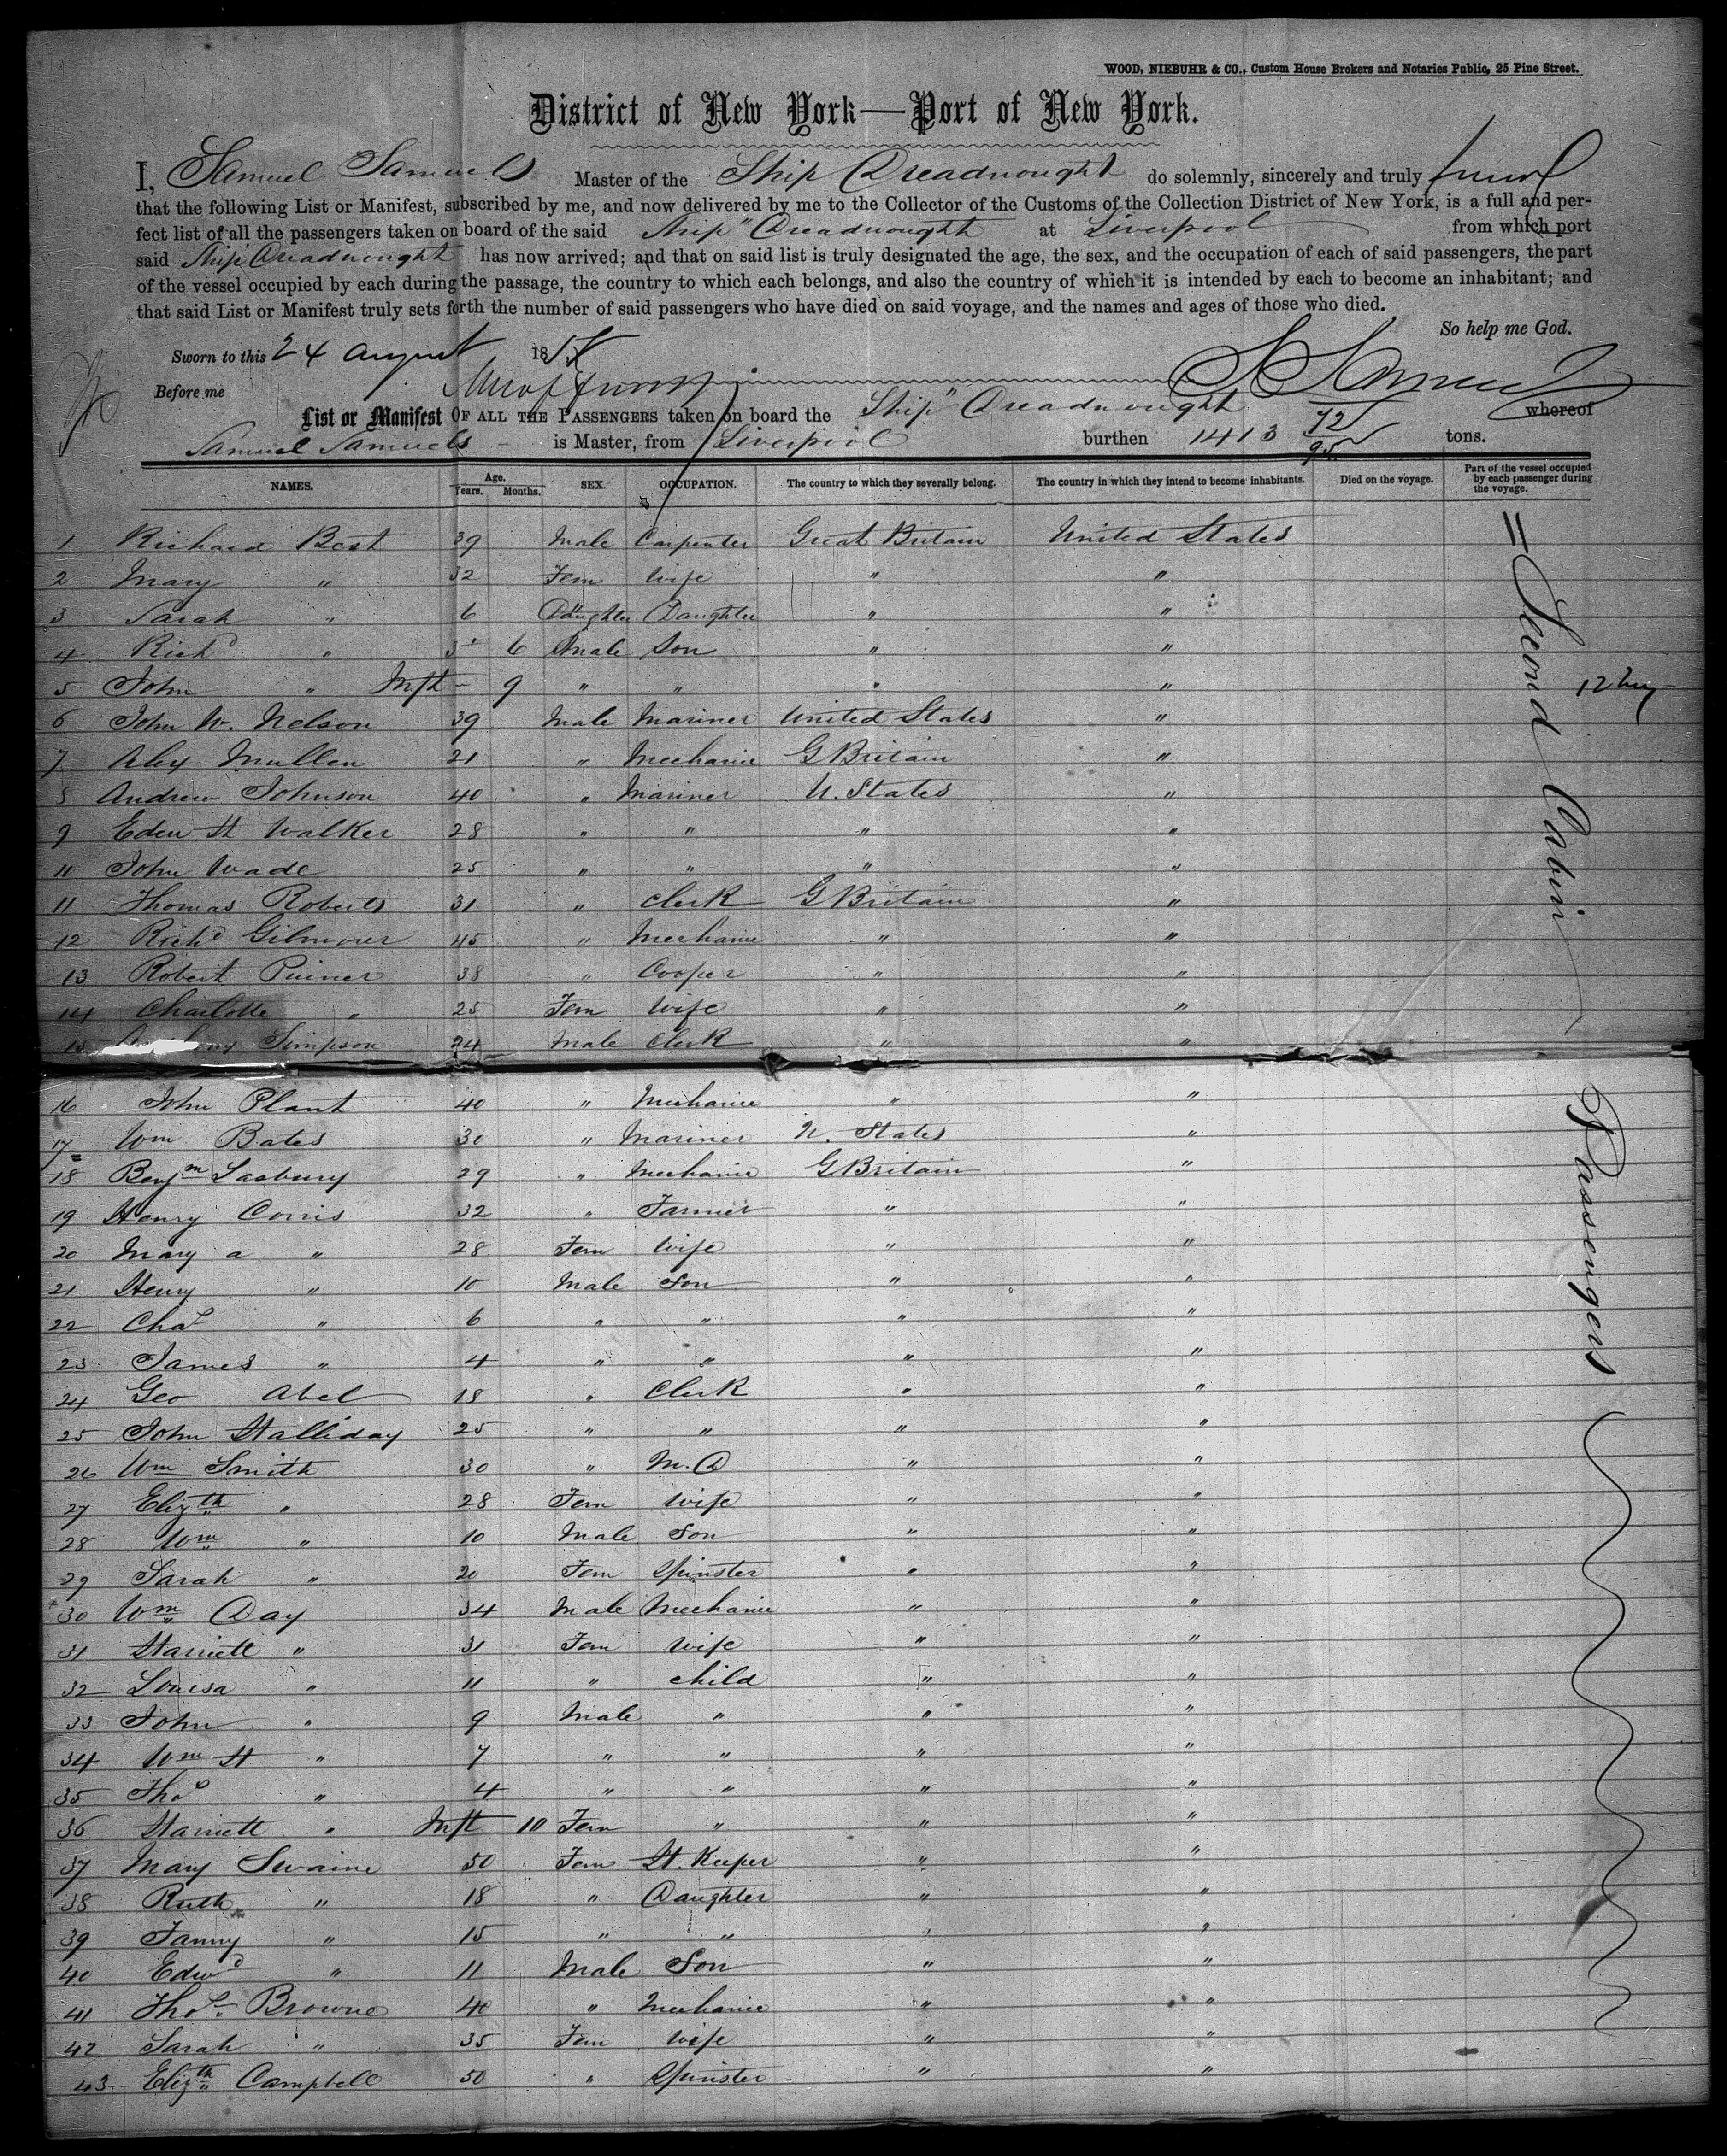 WOOD, NIEBUHR & CO., Custom House Brokers and Notaries Public, 25 Pine Street.
District of New York—Port of New York.
I, Samuel Samuels Master of the Ship Dreadnought do solemnly, sincerely and truly
that the following List or Manifest, subscribed by me, and now delivered by me to the Collector of the Customs of the Collection District of New York, is a full and per-
fect list of all the passengers taken on board of the said Ship "Dreadnought at Liverpool from which port
said Ship Dreadnought has now arrived; and that on said list is truly designated the age, the sex, and the occupation of each of said passengers, the part
of the vessel occupied by each during the passage, the country to which each belongs, and also the country of which it is intended by each to become an inhabitant; and
that said List or Manifest truly sets forth the number of said passengers who have died on said voyage, and the names and ages of those who died.
So help me God.
Sworn to this 24 August 18
Before me S Samuels
List or Manifest OF ALL THE PASSENGERS taken on board the Ship "Dreadnought whereof
Samuel Samuels is Master, from Liverpool burthen 1413 72/95 tons.
NAMES. Age. Years. Months. SEX. OCCUPATION. The country to which they severally belong. The country in which they intend to become inhabitants. Died on the voyage. Part of the vessel occupied by each passenger during the voyage.
1 Richard Best 39 Male Carpenter Great Britain United States
2 Mary " 32 Fem Wife " "
3 Sarah " 6 Daughter Daughter " "
4 Richd " 3 6 Male Son " "
5 John " Inft - 9 " " " "
6 John W. Nelson 39 Male Mariner United States "
7 Alex Mullen 21 " Mechanic G Britain "
8 Andrew Johnson 40 " Mariner U. States "
9 Eden H Walker 28 " " " "
10 John Wade 25 " " " "
11 Thomas Roberts 31 " Clerk G Britain "
12 Richd Gilmour 45 " Mechanic " "
13 Robert 38 " Cooper " "
14 Charlotte " 25 Fem Wife " "
15 Simpson 24 Male Clerk " "
16 John Plant 40 " Mechanic " "
17 Wm Bates 30 " Mariner U. States "
18 Benjm Lasbury 29 " Mechanic G Britain "
19 Henry Corris 32 " Farmer " "
20 Mary a " 28 Fem Wife " "
21 Henry " 10 Male Son " "
22 Chas " 6 " " " "
23 James " 4 " " " "
24 Geo Abel 18 " Clerk " "
25 John Halliday 25 " " " "
26 Wm Smith 30 " M.D " "
27 Elizth " 28 Fem Wife " "
28 Wm " 10 Male Son " "
29 Sarah " 20 Fem Spinster " "
30 Wm Day 34 Male Mechanic " "
31 Harriett " 31 Fem Wife " "
32 Louisa " 11 " child " "
33 John " 9 Male " " "
34 Wm H " 7 " " " "
35 Thos " 4 " " " "
36 Harriett " Inft 10 Fem " " "
37 Mary Swaine 50 Fem H. Keeper " "
38 Ruth " 18 " Daughter " "
39 Fanny " 15 " " " "
40 Edwd " 11 Male Son " "
41 Thos Browne 40 " Mechanic " "
42 Sarah " 35 Fem Wife " "
43 Elizth Campbell 50 " Spinster " "
Second Cabin Passengers